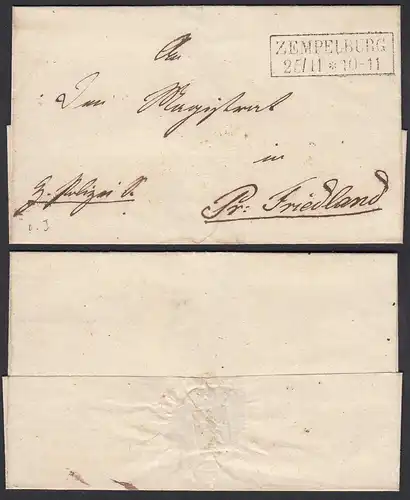 ZEMPELBURG
25/11 * 10-11
An
Den Magistrat
in
Pr: Friedland
H. Polizei S.